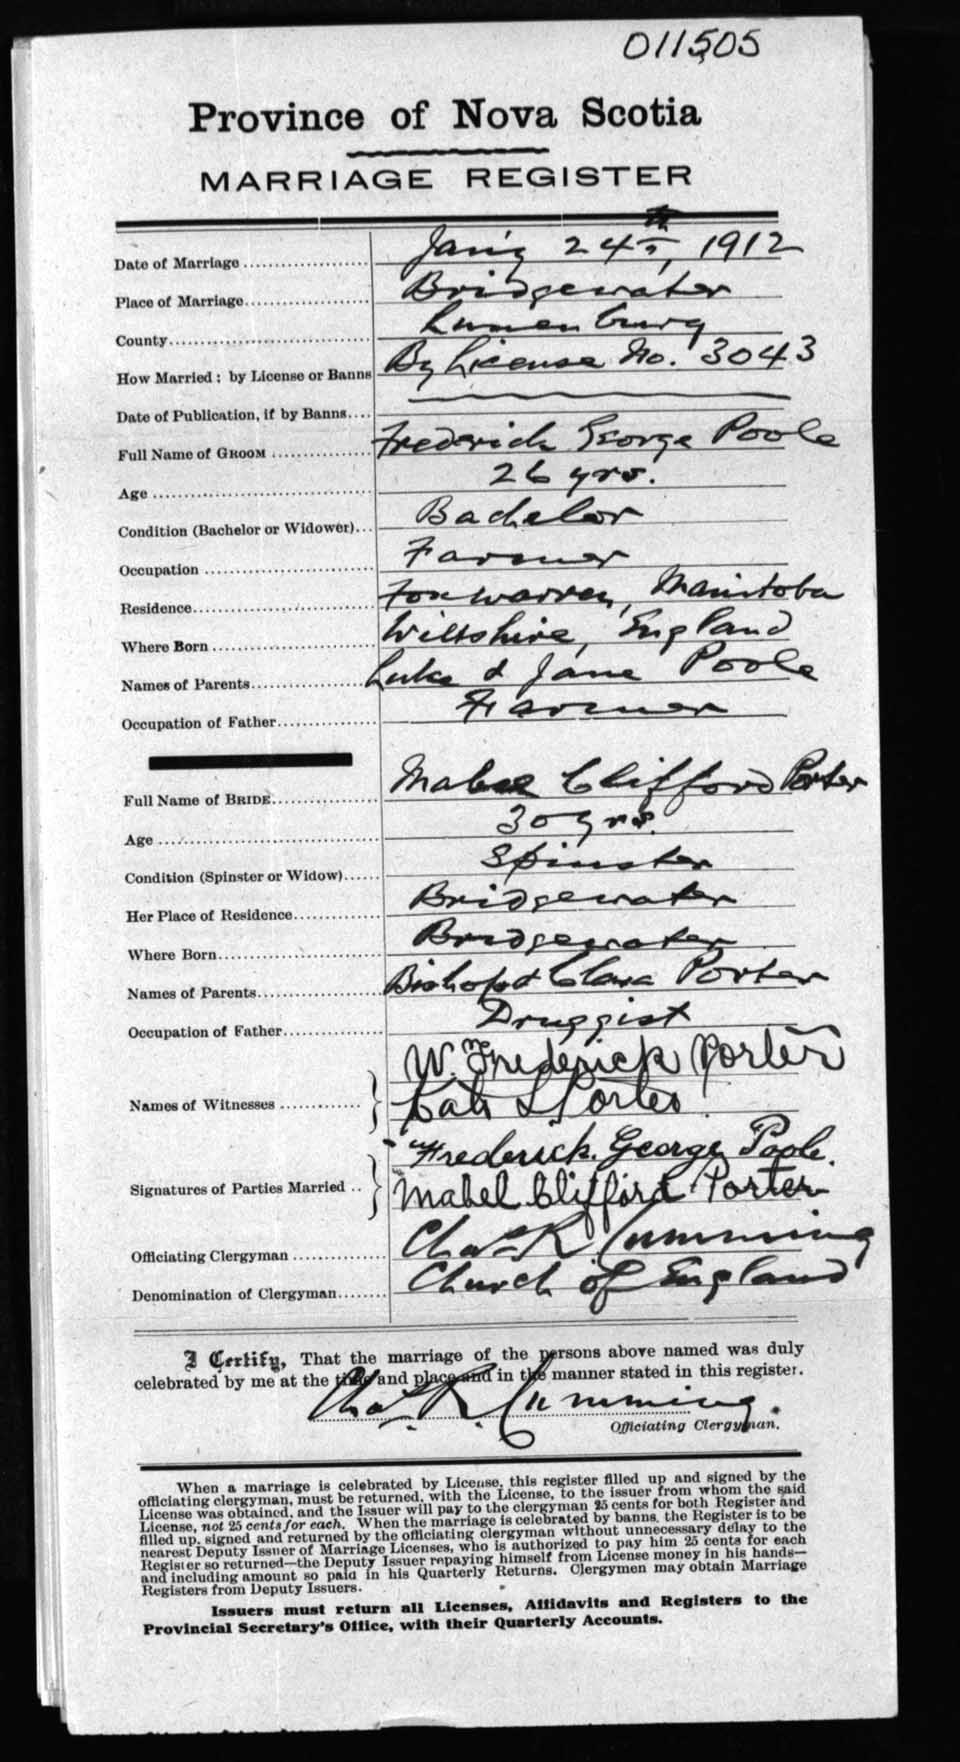 011505
Province of Nova Scotia
MARRIAGE REGISTER
Date of Marriage Jan'y 24th, 1912
Place of Marriage Bridgewater
County Lunenburg
How Married: by License or Banns By License No. 3043
Date of Publication, if by Banns
Full Name of GROOM Frederick George Poole
Age 26 yrs.
Condition (Bachelor or Widower) Bachelor
Occupation Farmer
Residence Foxwarren, Manitoba
Where Born Wiltshire, England
Names of Parents Luke & Jane Poole
Occupation of Father Farmer
Full Name of BRIDE Mabel Clifford Porter
Age 30 yrs.
Condition (Spinster or Widow) Spinster
Her Place of Residence Bridgewater
Where Born Bridgewater
Names of Parents Bishop & Clara Porter
Occupation of Father Druggist
W. Frederick Porter
Names of Witnesses Porter
Frederick George Poole.
Signatures of Parties Married Mabel Clifford Porter
Officiating Clergyman Chas R. Cumming
Denomination of Clergyman Church of England
I Certify, That the marriage of the persons above named was duly
celebrated by me at the time and place and in the manner stated in this register.
Chas. R. Cumming.
Officiating Clergyman.
When a marriage is celebrated by License, this register filled up and signed by the
officiating clergyman, must be returned, with the License, to the issuer from whom the said
License was obtained, and the Issuer will pay to the clergyman 25 cents for both Register and
License, not 25 cents for each. When the marriage is celebrated by banns, the Register is to be
filled up, signed and returned by the officiating clergyman without unnecessary delay to the
nearest Deputy Issuer of Marriage Licenses, who is authorized to pay him 25 cents for each
Register so returned—the Deputy Issuer repaying himself from License money in his hands—
and including amount so paid in his Quarterly Returns. Clergymen may obtain Marriage
Registers from Deputy Issuers.
Issuers must return all Licenses, Affidavits and Registers to the
Provincial Secretary's Office, with their Quarterly Accounts.